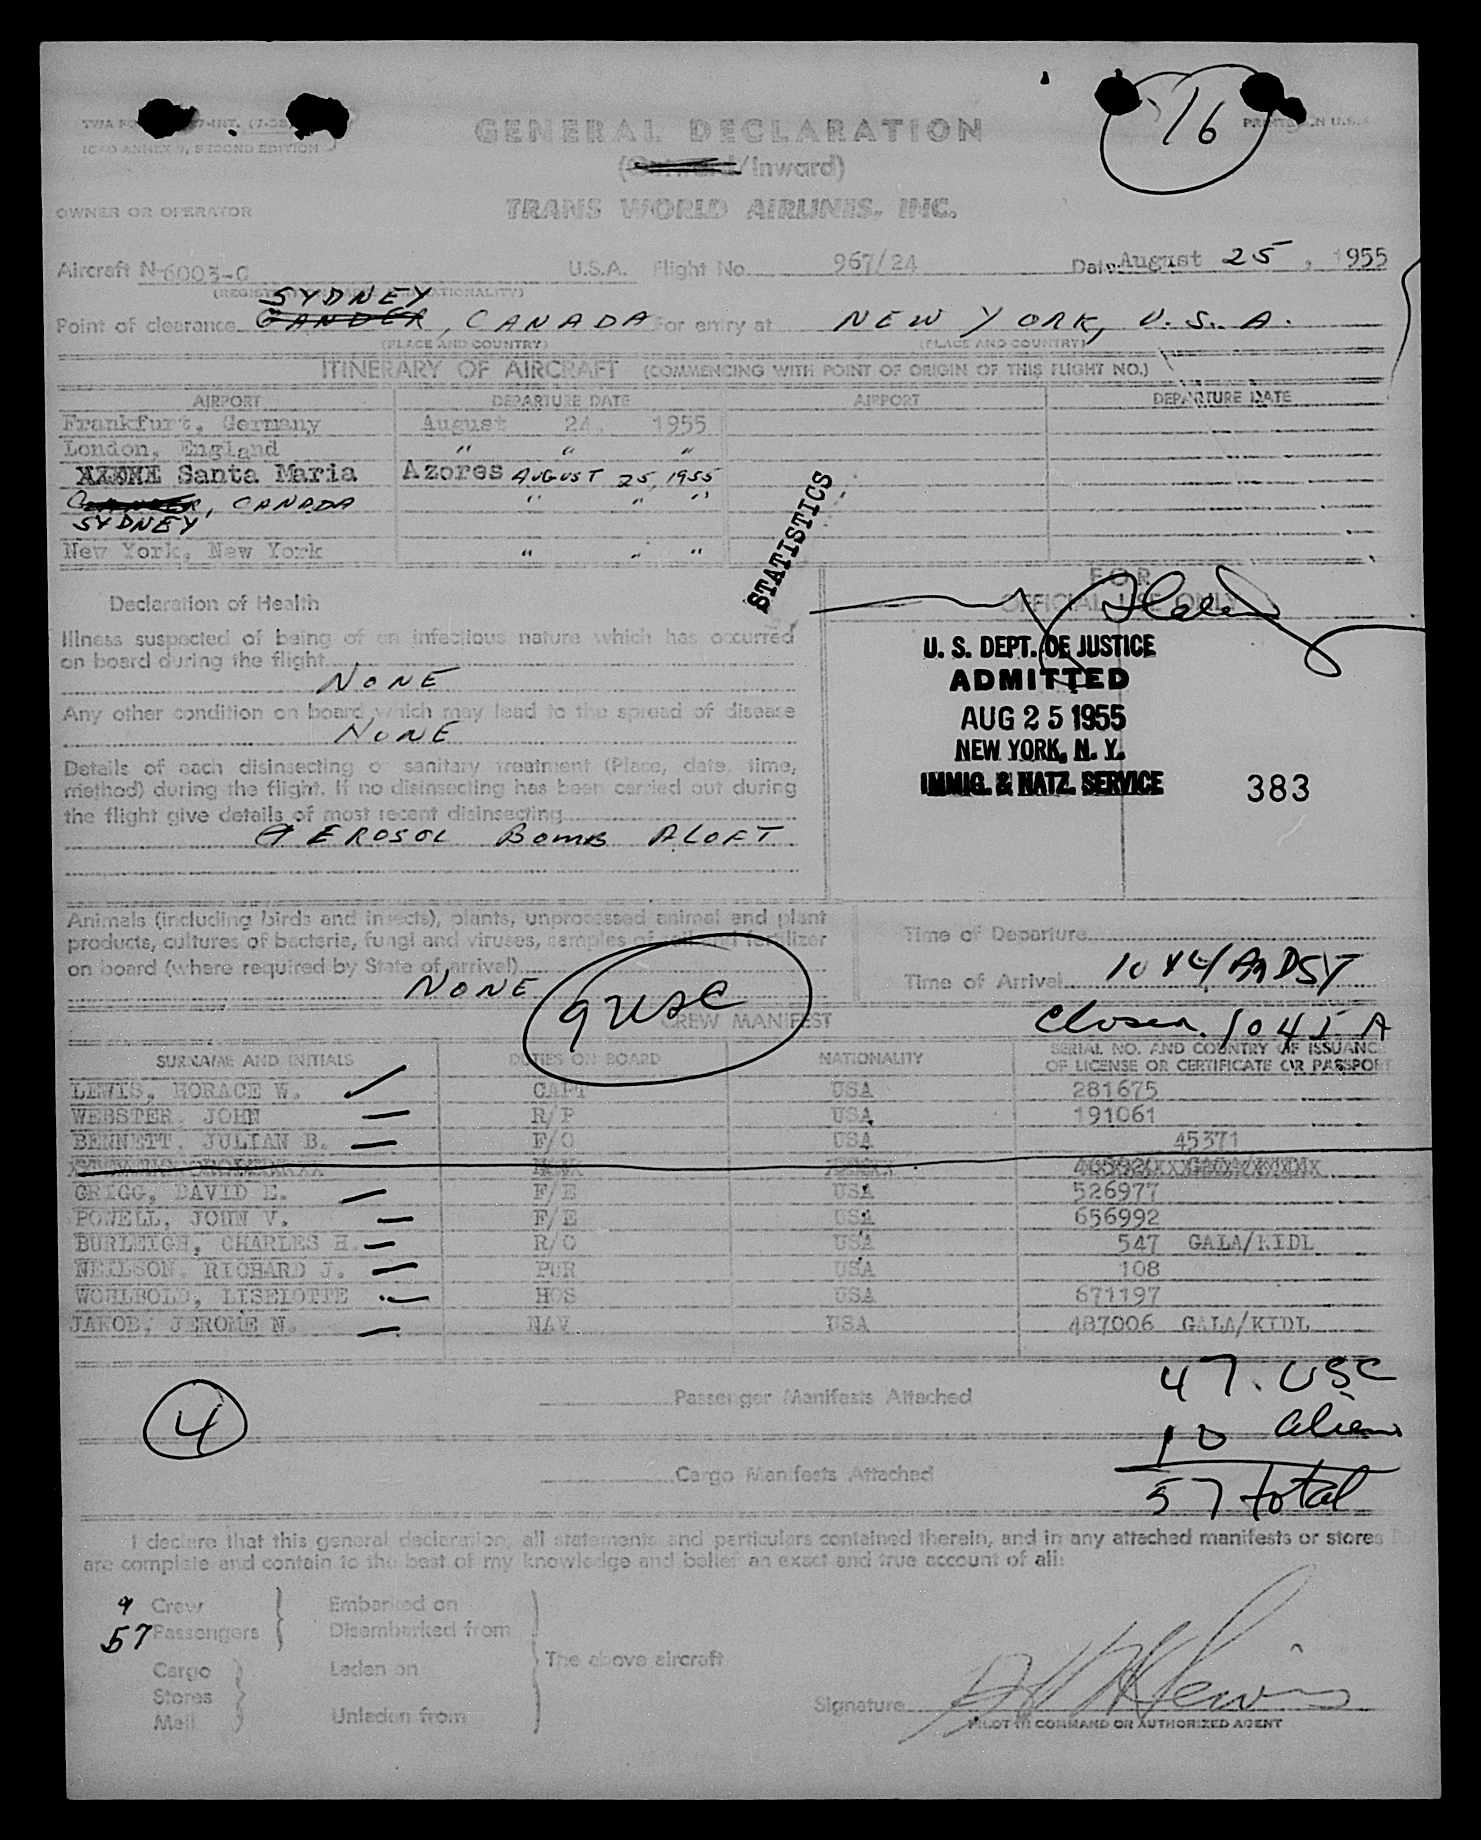 16
GENERAL DECLARATION
(Outward/Inward)
ICAO ANNEX 9, SECOND EDITION
OWNER OR OPERATOR
TRANS WORLD AIRLINES, INC.
Aircraft N-6003-C U.S.A. Flight No. 967/24 Date August 25, 1955
SYDNEY
Point of clearance GANDER, CANADA For entry at NEW YORK, U.S.A.
(PLACE AND COUNTRY) (PLACE AND COUNTRY)
ITINERARY OF AIRCRAFT (COMMENCING WITH POINT OF ORIGIN OF THIS FLIGHT NO.)
AIRPORT DEPARTURE DATE AIRPORT DEPARTURE DATE
Frankfurt, Germany August 24, 1955
London, England " " "
Santa Maria Azores AUGUST 25, 1955
GANDER, CANADA " " "
SYDNEY
New York, New York " " "
STATISTICS
Declaration of Health
FOR
OFFICIAL USE ONLY
Illness suspected of being of an infectious nature which has occurred
on board during the flight
NONE
Any other condition on board which may lead to the spread of disease
NONE
Details of each disinsecting or sanitary treatment (Place, date, time,
method) during the flight. If no disinsecting has been carried out during
the flight give details of most recent disinsecting
AEROSOL BOMB ALOFT
U. S. DEPT. OF JUSTICE
ADMITTED
AUG 25 1955
NEW YORK, N. Y.
IMMIG. & NATZ. SERVICE 383
Animals (including birds and insects), plants, unprocessed animal and plant
products, cultures of bacteria, fungi and viruses, samples of soil and fertilizer
on board (where required by State of arrival)
NONE
Time of Departure
Time of Arrival
9 USC
CREW MANIFEST
SURNAME AND INITIALS DUTIES ON BOARD NATIONALITY SERIAL NO. AND COUNTRY OF ISSUANCE
OF LICENSE OR CERTIFICATE OR PASSPORT
LEWIS, HORACE W. CAPT USA 281675
WEBSTER, JOHN R/P USA 191061
BENNETT, JULIAN B. F/O USA 45371
GRIGG, DAVID E. F/E USA 526977
POWELL, JOHN V. F/E USA 656992
BURLEIGH, CHARLES H. R/O USA 547 GALA/KIDL
NEILSON, RICHARD J. PUR USA 108
WOHLBOLD, LISELOTTE HOS USA 671197
JAKOB, JEROME N. NAV USA 487006 GALA/KIDL
47 USC
4
Passenger Manifests Attached
10 alien
Cargo Manifests Attached
57 total
I declare that this general declaration, all statements and particulars contained therein, and in any attached manifests or stores
are complete and contain to the best of my knowledge and belief an exact and true account of all:
9 Crew Embarked on
57 Passengers Disembarked from
The above aircraft
Cargo Laden on
Stores
Mail Unladen from
Signature H W Lewis
PILOT IN COMMAND OR AUTHORIZED AGENT